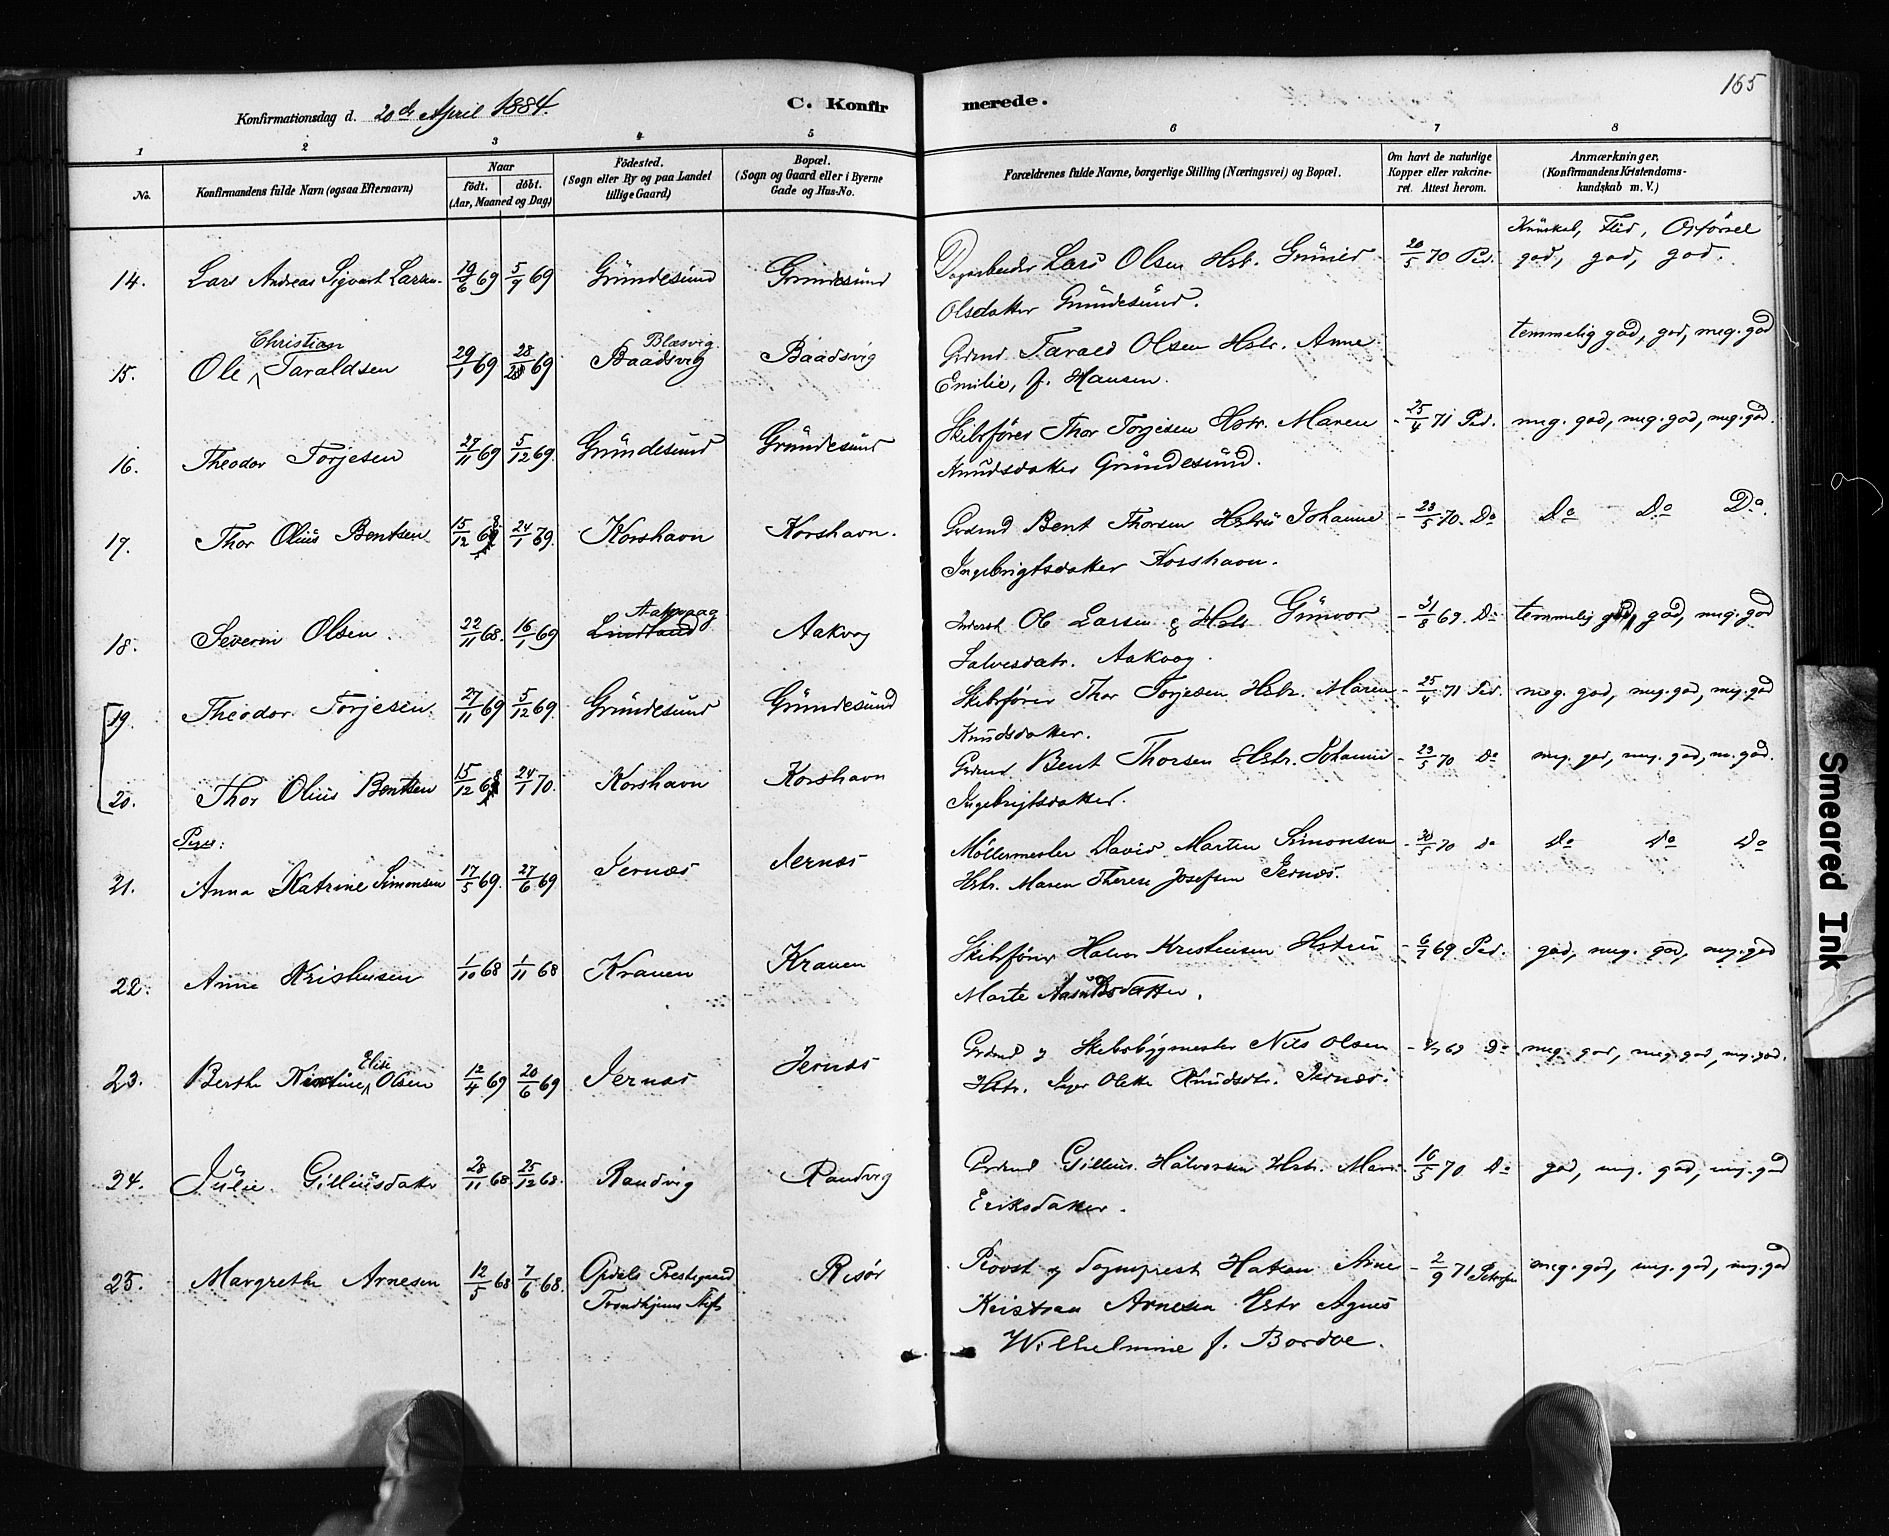 165
Konfirmationsdag d. 20de April 1884.
C. Konfirmerede.
1 2 3 4 5 6 7 8
No.
Konfirmandens fulde Navn (ogsaa Efternavn)
Naar
født. døbt.
(Aar, Maaned og Dag)
Fødested.
(Sogn eller By og paa Landet
tillige Gaard)
Bopæl.
(Sogn og Gaard eller i Byerne
Gade og Hus-No.
Forældrenes fulde Navne, borgerlige Stilling (Næringsvei) og Bopæl.
Om havt de naturlige
Kopper eller vakcine-
ret. Attest herom.
Anmærkninger.
(Konfirmandens Kristendoms-
kundskab m. V.)
Kundskab, Flid, Opførsel
14. Lars Andreas Sigvart Larsen. 19/6 69 5/9 69 Gründesund Gründesund Dagarbeider Lars Olsen Hst. Gunild 20/5 70 Ped. god, god, god.
Olsdatter Gründesund.
Christian Blæsvig
15. Ole Taraldsen 29/1 69 28/2 69 Baadsvig Baadsvig Grdmd Tarald Olsen Hstr. Anne temmelig god, god, meg. god
Emilie, f. Hansen.
16. Theodor Torjesen 27/11 69 5/12 69. Gründesund Gründesund Skibsfører Thor Torjesen Hstr. Maren - 25/4 71 Ped. meg. god, meg. god, meg. god.
Knudsdatter Gründesund.
17. Thor Olius Bentsen 15/12 68 24/1 69. Korshavn Korshavn. Grdmd Bent Thorsen Hstru Johanne - 23/5 70. Do Do Do Do.
Ingebrigtsdatter Korshavn.
Aakvaag
18. Severin Olsen. 22/11 68. 16/1 69 Lindland Aakvog Inderst Ole Larsen & Hstr Günvor - 31/8 69. Do temmelig god, god, meg. god
Salvesdatr. Aakvog.
19. Theodor Torjesen. 27/11 69 5/12 69. Gründesund Gründesund Skibsfører Thor Torjesen Hstr. Maren - 25/4 71 Ped. meg. god, meg. god, meg. god
Knudsdatter.
20. Thor Olius Bentsen 15/12 68 24/1 70. Korshavn Korshavn Grdmd Bent Thorsen Hstr. Johanne - 23/5 70 Do meg. god, meg. god, m. god.
Ingebrigtsdatter.
Piger:
21. Anna Katrine Simonsen 17/5 69. 27/6 69 Jernæs Jernæs Møllermester David Martin Simonsen - 30/5 70 Do Do Do Do
Hstr. Maren Therese Josefsen Jernæs.
22. Anne Kristensen 1/10 68 1/11 68 Kranen Kranen Skibsfører Halvor Kristensen Hstru - 6/7 69 Ped. god, meg. god, meg. god
Marte Aasulsdatter.
Elise
23. Berthe Kirstine Olsen 12/4 69 20/6 69 Jernæs Jernæs Grdmd og Skibsbygmester Nils Olsen Do meg. god, meg. god, meg. god.
Hstr. Inger Olette Knudsdtr. Jernæs.
24. Julie Gilliusdatter 28/11 68 25/12 68. Randvig Randvig Grdmd Gillius Halvorsen Hstr. Mari - 16/5 70 Do god, meg. god, meg. god
Eriksdatter.
25. Margrethe Arnesen 12/5 68 7/6 68. Opdals Prestegaard Risør Provst og Sogneprest Hatten Arne - 2/9 71 Petersen meg. god, meg. god, meg. god
Trondhjems Stift Kristian Arnesen Hstr Agnes
Wilhelmine f. Bordoe.
Smeared Ink